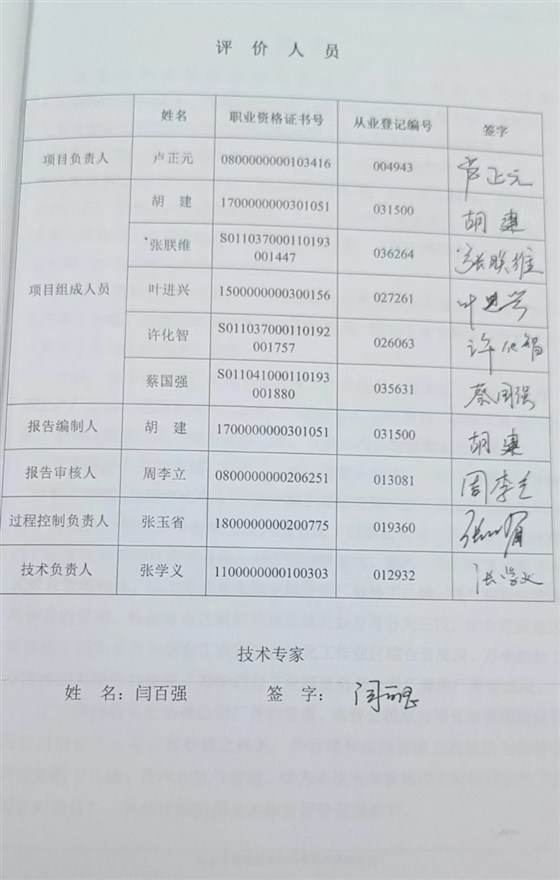 评价人员
姓名 职业资格证书号 从业登记编号 签字
项目负责人 卢正元 0800000000103416 004943 卢正元
胡 建 1700000000301051 031500 胡建
张联维 S011037000110193001447 036264 张联维
项目组成人员 叶进兴 1500000000300156 027261 叶进兴
许化智 S011037000110192001757 026063 许化智
蔡国强 S011041000110193001880 035631 蔡国强
报告编制人 胡 建 1700000000301051 031500 胡建
报告审核人 周李立 0800000000206251 013081 周李立
过程控制负责人 张玉省 1800000000200775 019360 张玉省
技术负责人 张学义 1100000000100303 012932 张学义
技术专家
姓 名：闫百强 签 字：